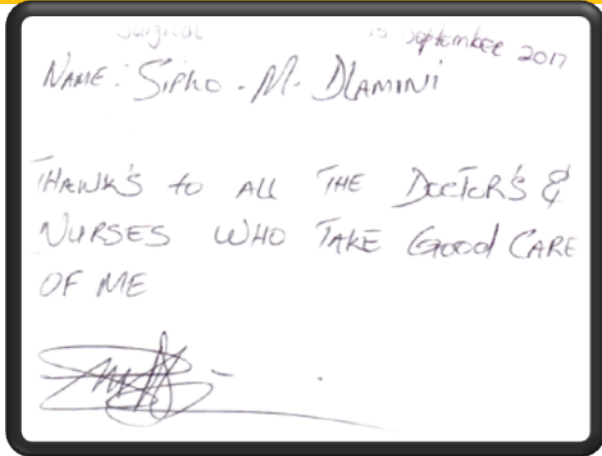 Surgical 15 September 2017
NAME: SIPHO - M. DLAMINI
THANK'S to ALL THE DOCTOR'S &
NURSES WHO TAKE Good CARE
OF ME